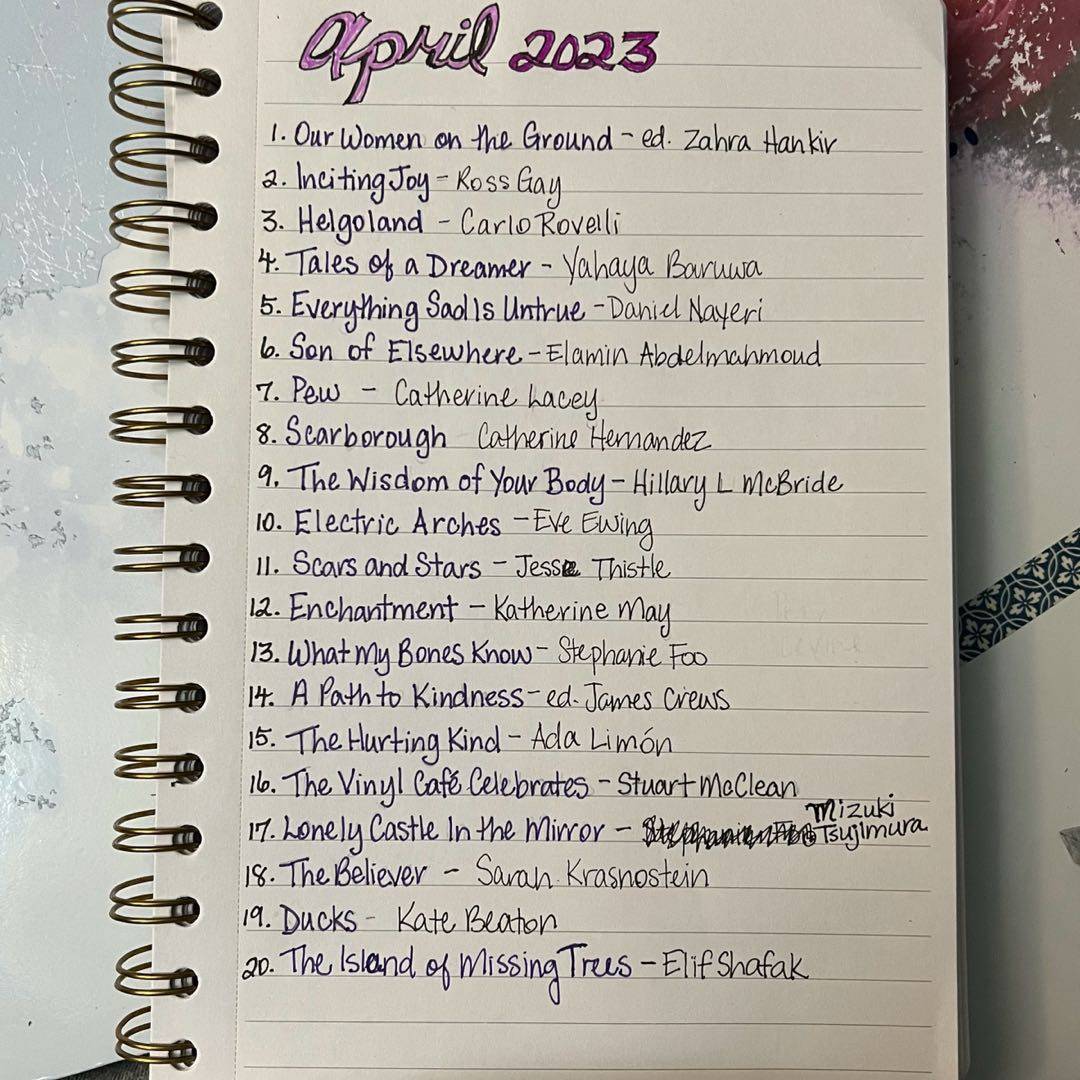 April 2023
1. Our Women on the Ground - ed. Zahra Hankir
2. Inciting Joy - Ross Gay
3. Helgoland - Carlo Rovelli
4. Tales of a Dreamer - Yahaya Baruwa
5. Everything Sad Is Untrue - Daniel Nayeri
6. Son of Elsewhere - Elamin Abdelmahmoud
7. Pew - Catherine Lacey
8. Scarborough Catherine Hernandez
9. The Wisdom of Your Body - Hillary L McBride
10. Electric Arches - Eve Ewing
11. Scars and Stars - Jesse Thistle
12. Enchantment - Katherine May
13. What My Bones Know - Stephanie Foo
14. A Path to Kindness - ed. James Crews
15. The Hurting Kind - Ada Limón
16. The Vinyl Café Celebrates - Stuart McClean
17. Lonely Castle In the Mirror - Mizuki Tsujimura
18. The Believer - Sarah Krasnostein
19. Ducks - Kate Beaton
20. The Island of Missing Trees - Elif Shafak